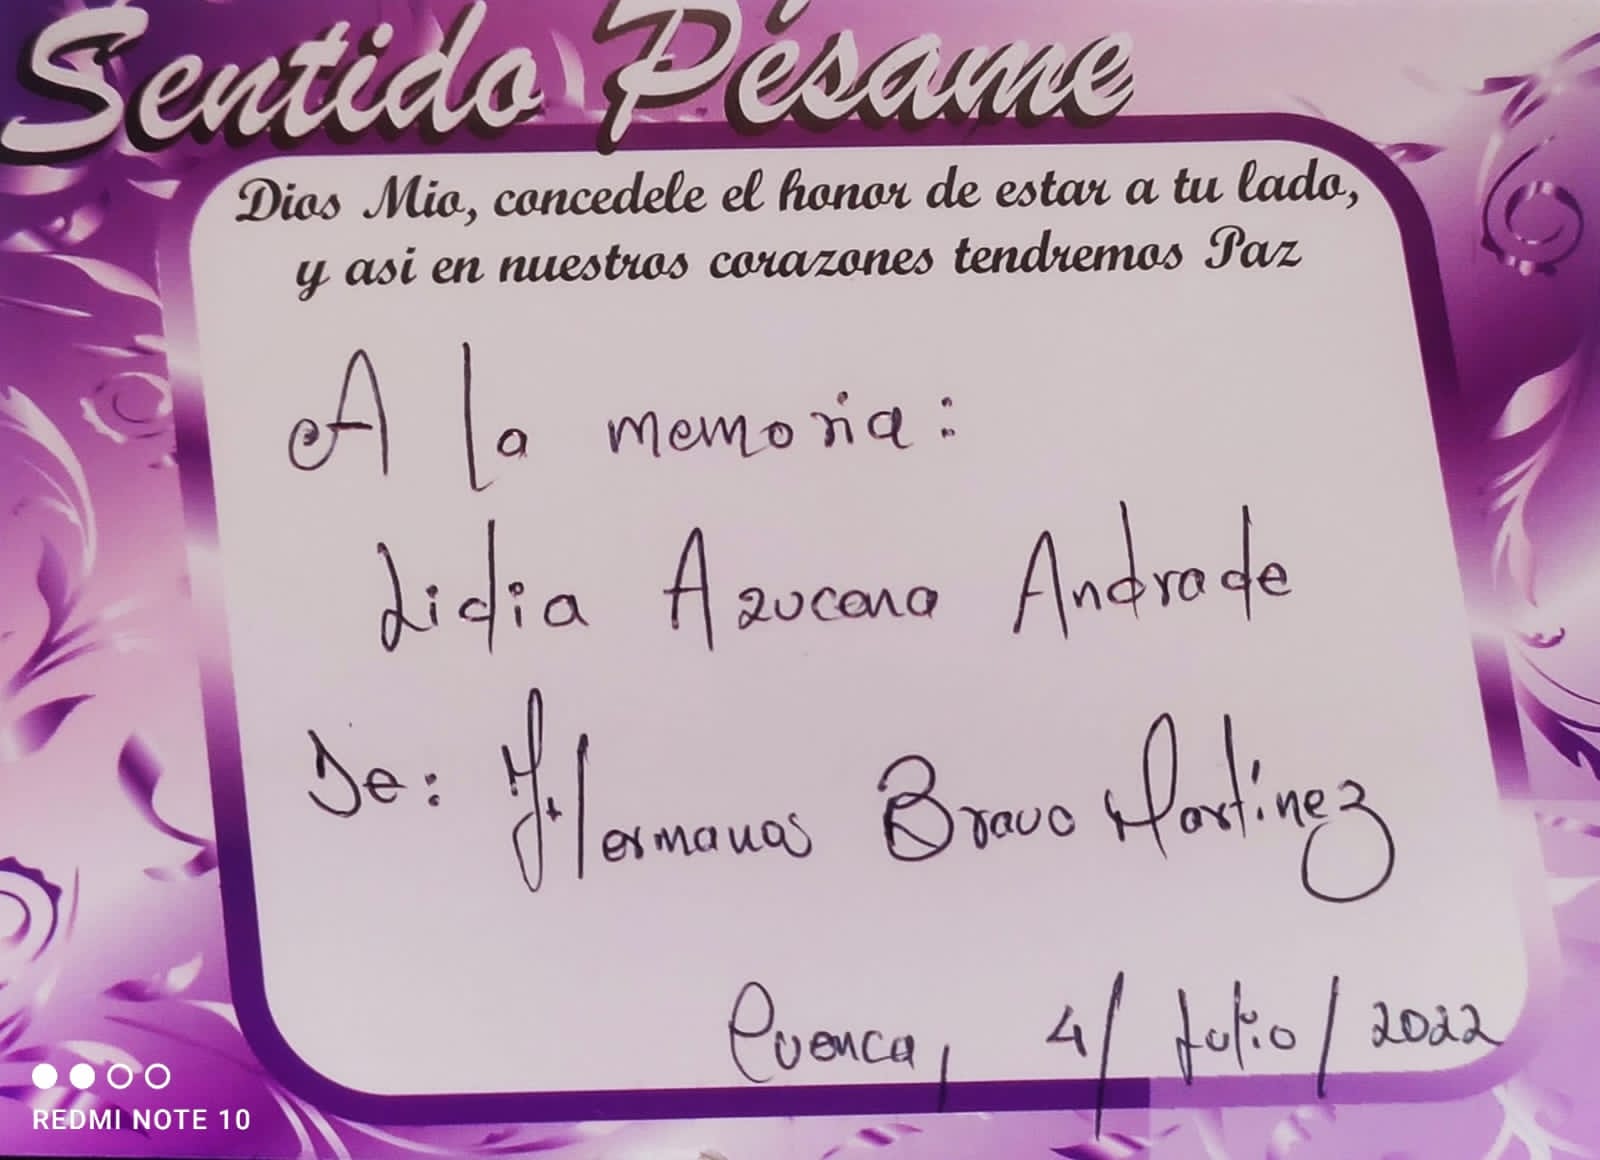 Sentido Pésame
Dios Mio, concedele el honor de estar a tu lado,
y asi en nuestros corazones tendremos Paz
A la memoria:
Lidia Azucena Andrade
De: Hermanos Bravo Martínez
Cuenca, 4/Julio/2022
REDMI NOTE 10